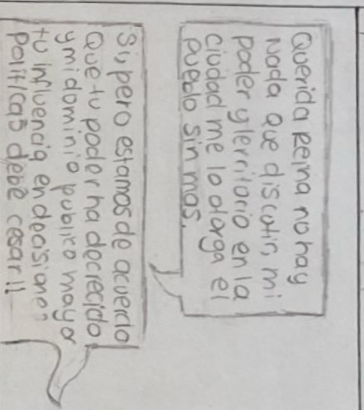 Querida Reina no hay
nada que discutir, mi
poder y territorio en la
ciudad me lo otorga el
pueblo sin mas.
Si, pero estamos de acuerdo
Que tu poder ha decrecido
y mi dominio publico mayor
tu influencia en decisiones
politicas debe cesar!!